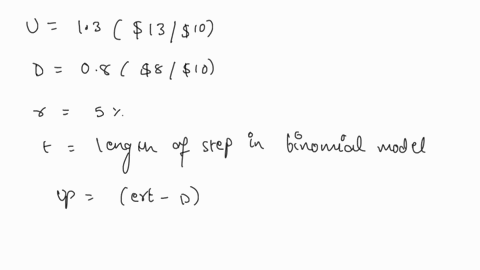 U = 1.3 ( $13/$10)
D = 0.8 ( $8/$10)
r = 5 %
t = length of step in binomial model
up = (ert - D)